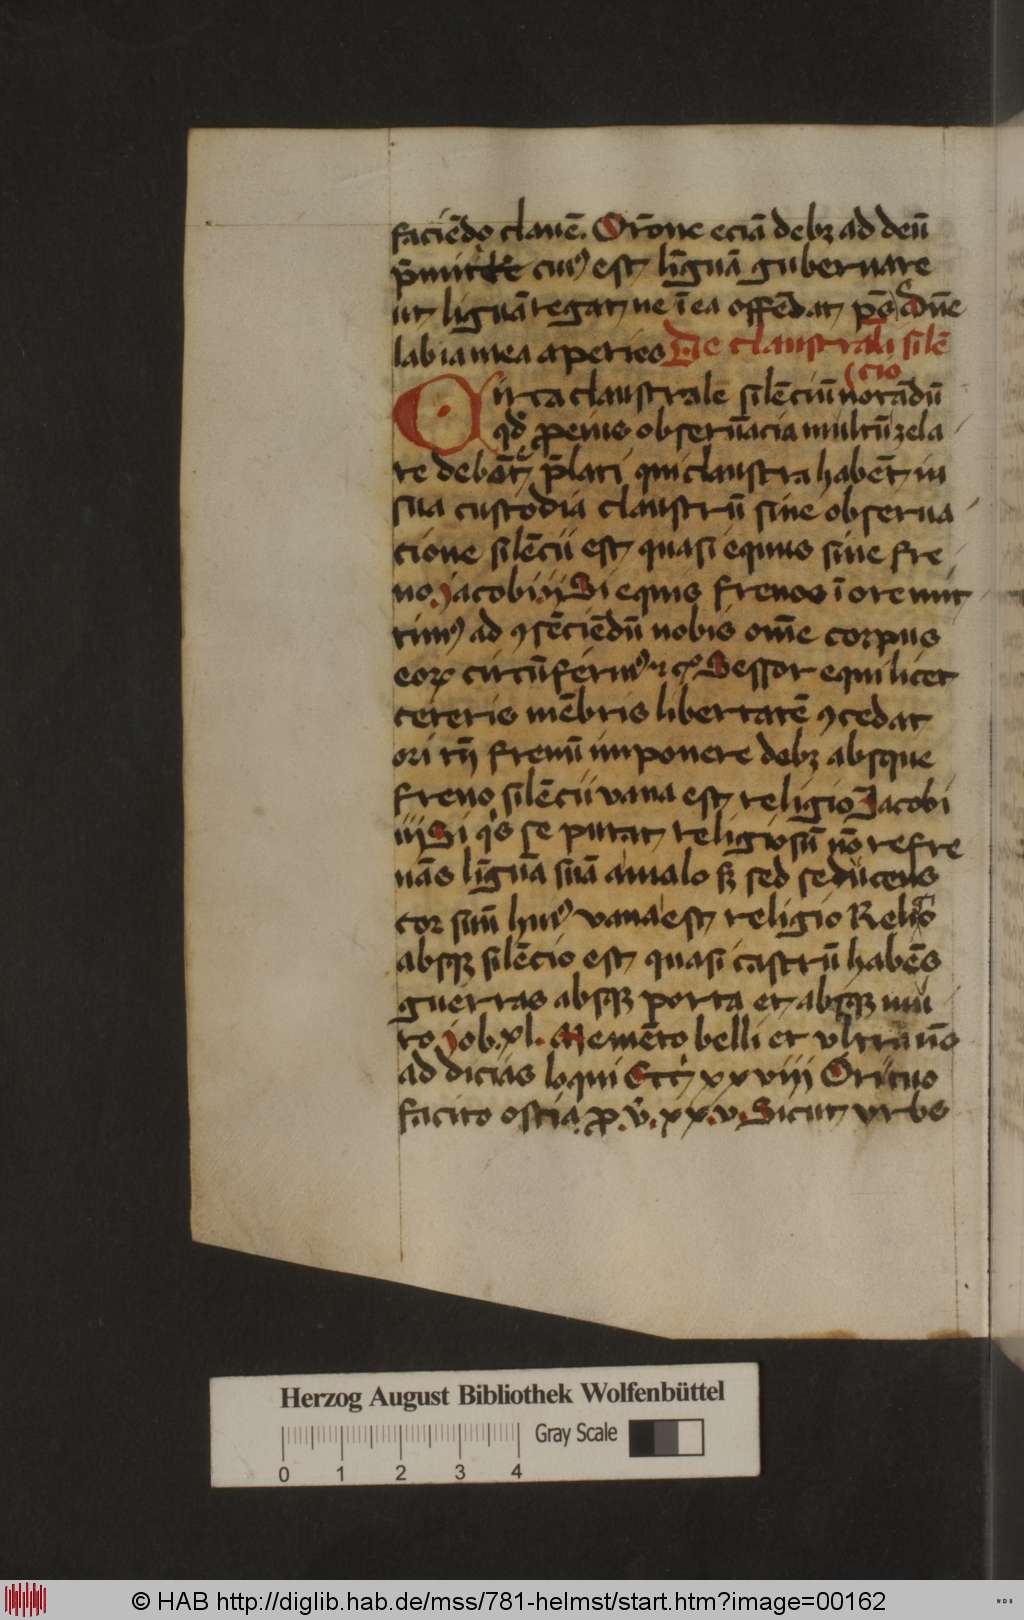 faciēdo clauē. Orōne eciā debꝫ ad deū
p̄mitte cuiꝰ est linguā gubernare
ut liguā regat ne ī ea offēdat pō Dn̄e
labia mea aperies De claustrali silē
cio
Circa claustrale silēciū notādū
qd̄ ꝓ eius obseruācia multū zela
re debēt p̄lati qui claustra habēt in
sua custodia claustrū sine obserua
cione silēcii est quasi equus sine fre
no. Jacobi iij Si equis frenos ī ore mit
timꝰ ad ꝯsēciēdū nobis om̄e corpus
eorꝝ circūferimꝰ Sessor equi licet
ceteris mēbris libertatē ꝯcedat
ori tn̄ frenū imponere debꝫ absque
freno silēcii vana est religio Jacobi
iij Si qis se putat religiosū nō refre
nās līguā suā a malo sꝫ sed seducens
cor suū huiꝰ vana est religio Relio
absqꝫ silēcio est quasi castrū habēs
guerras absqꝫ porta et absqꝫ mu
ro Job. xl. Memēto belli et vltra n̄s
addicias loqui Eccī xxviii Ori tuo
facito ostia. ꝓv̄. xx.v. Sicut vrbs
Herzog August Bibliothek Wolfenbüttel
Gray Scale
0 1 2 3 4
© HAB http://diglib.hab.de/mss/781-helmst/start.htm?image=00162